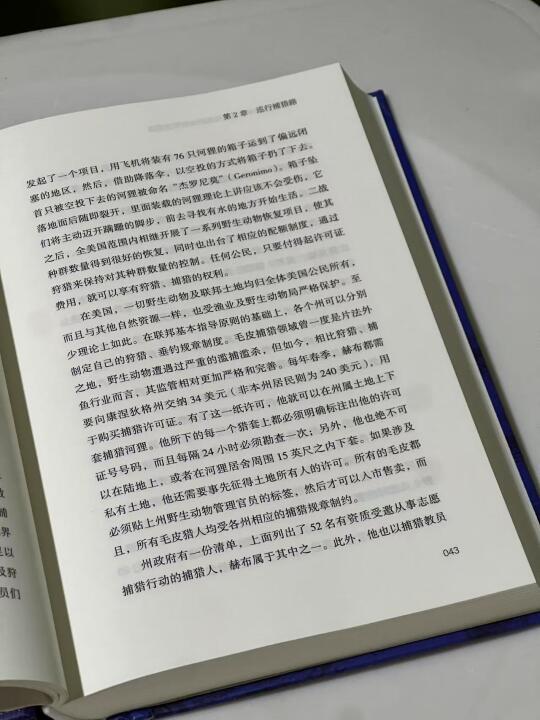 第 2 章 巡行捕猎路
发起了一个项目，用飞机将装有 76 只河狸的箱子运到了偏远闭
塞的地区，然后，借助降落伞，以空投的方式将箱子扔了下去。
首只被空投下去的河狸被命名“杰罗尼莫”（Geronimo）。箱子坠
落地面后随即裂开，里面装载的河狸理论上讲应该不会受伤，它
们将主动迈开蹒跚的脚步，前去寻找有水的地方开始生活。二战
之后，全美国范围内相继开展了一系列野生动物恢复项目，使其
种群数量得到很好的恢复，同时也出台了相应的配额制度，通过
狩猎来保持对其种群数量的控制。任何公民，只要付得起许可证
费用，就可以享有狩猎、捕猎的权利。
在美国，一切野生动物及联邦土地均归全体美国公民所有，
而且与其他自然资源一样，也受渔业及野生动物局严格保护。至
少理论上如此。在联邦基本指导原则的基础上，各个州可以分别
制定自己的狩猎、垂钓规章制度。毛皮捕猎领域曾一度是片法外
之地，野生动物遭遇过严重的滥捕滥杀，但如今，相比狩猎、捕
鱼行业而言，其监管相对更加严格和完善。每年春季，赫布都需
要向康涅狄格州交纳 34 美元（非本州居民则为 240 美元），用
于购买捕猎许可证。有了这一纸许可，他就可以在州属土地上下
套捕猎河狸。他所下的每一个猎套上都必须明确标注出他的许可
证号号码，而且每隔 24 小时必须勘查一次；另外，他也绝不可
以在陆地上，或者在河狸居舍周围 15 英尺之内下套。如果涉及
私有土地，他还需要事先征得土地所有人的许可。所有的毛皮都
必须贴上州野生动物管理官员的标签，然后才可以入市售卖，而
且，所有毛皮猎人均受各州相应的捕猎规章制约。
州政府有一份清单，上面列出了 52 名有资质受邀从事志愿
捕猎行动的捕猎人，赫布属于其中之一。此外，他也以捕猎教员
043